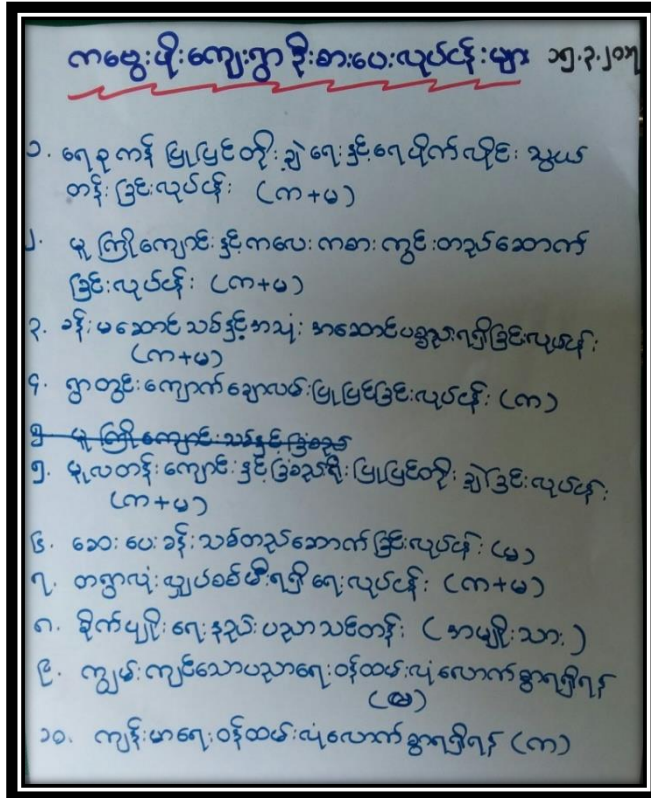 ကဗွေးဖိုးကျေးရွာ ဦးစားပေးလုပ်ငန်းများ ၁၅.၃.၂၀၁၇
၁. ရေစုကန် ပြုပြင်တိုးချဲ့ရေးနှင့်ရေပိုက်လိုင်း သွယ်
တန်းခြင်းလုပ်ငန်း (က+မ)
၂. မူကြိုကျောင်းနှင့်ကလေးကစားကွင်းတည်ဆောက်
ခြင်းလုပ်ငန်း (က+မ)
၃. ခန်းမဆောင်သစ်နှင့်အသုံးအဆောင်ပစ္စည်းရရှိခြင်းလုပ်ငန်း
(က+မ)
၄. ရွာတွင်းကျောက်ချောလမ်းပြုပြင်ခြင်းလုပ်ငန်း (က)
၅ မူကြိုကျောင်းသစ်နှင့်ခြံစည်း
၅. မူလတန်းကျောင်းနှင့်ခြံစည်းရိုးပြုပြင်တိုးချဲ့ခြင်းလုပ်ငန်း
(က+မ)
၆. ဆေးပေးခန်းသစ်တည်ဆောက်ခြင်းလုပ်ငန်း (မ)
၇. တရွာလုံးလျှပ်စစ်မီးရရှိရေးလုပ်ငန်း (က+မ)
၈. စိုက်ပျိုးရေးနည်းပညာသင်တန်း (အမျိုးသား)
၉. ကျွမ်းကျင်သောပညာရေးဝန်ထမ်းလုံလောက်စွာရရှိရန်
(မ)
၁၀. ကျန်းမာရေးဝန်ထမ်းလုံလောက်စွာရရှိရန် (က)